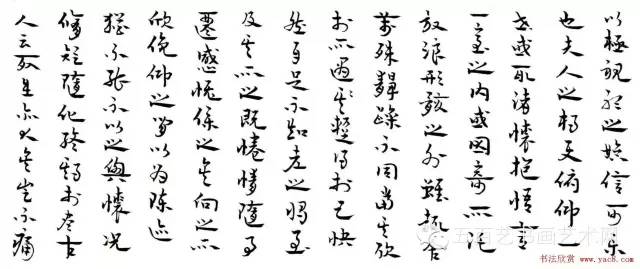 以極視聽之娛信可樂
也夫人之相與俯仰
一世或取諸懷抱悟言
一室之內或因寄所託
放浪形骸之外雖趣舍
萬殊靜躁不同當其欣
於所遇暫得於己快
然自足不知老之將至
及其所之既惓情隨事
遷感慨係之矣向之所
欣俛仰之間以為陳迹
猶不能不以之興懷況
脩短隨化終期於盡古
人云死生亦大矣豈不痛
书法欣赏 www.yac8.com